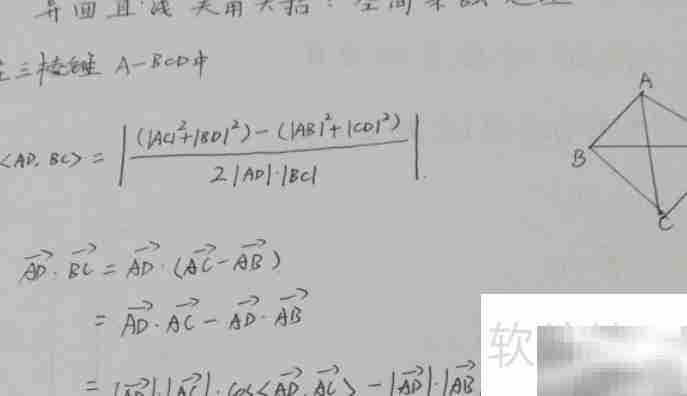 异面直线夹角大招：空间余弦定理
在三棱锥 A-BCD中
<AD, BC> = | (|AC|²+|BD|²) - (|AB|²+|CD|²) / 2|AD|·|BC| |.
A
B
C
\overrightarrow{AD}·\overrightarrow{BC} = \overrightarrow{AD}·(\overrightarrow{AC}-\overrightarrow{AB})
= \overrightarrow{AD}·\overrightarrow{AC} - \overrightarrow{AD}·\overrightarrow{AB}
= |\overrightarrow{AD}|·|\overrightarrow{AC}|·cos<\overrightarrow{AD},\overrightarrow{AC}> - |\overrightarrow{AD}|·|\overrightarrow{AB}
软